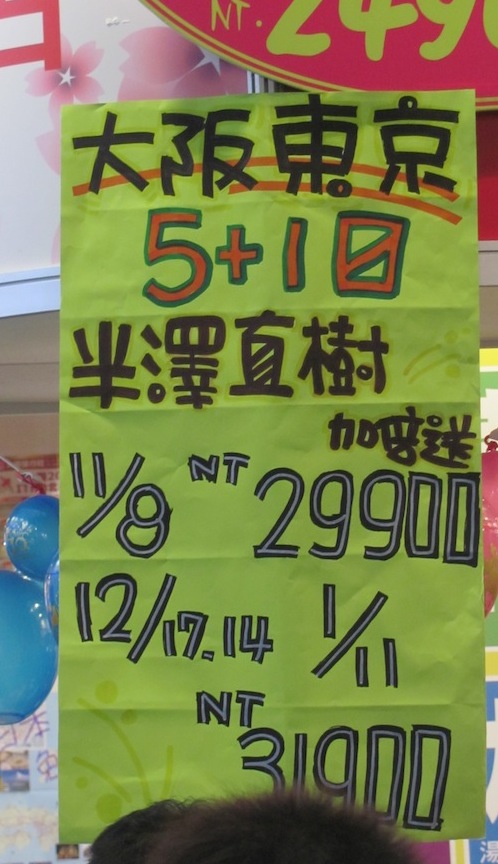 NT. 2490
大阪東京
5+1日
半澤直樹
加倍送
11/8 NT 29900
12/17.14 1/11
NT
31900